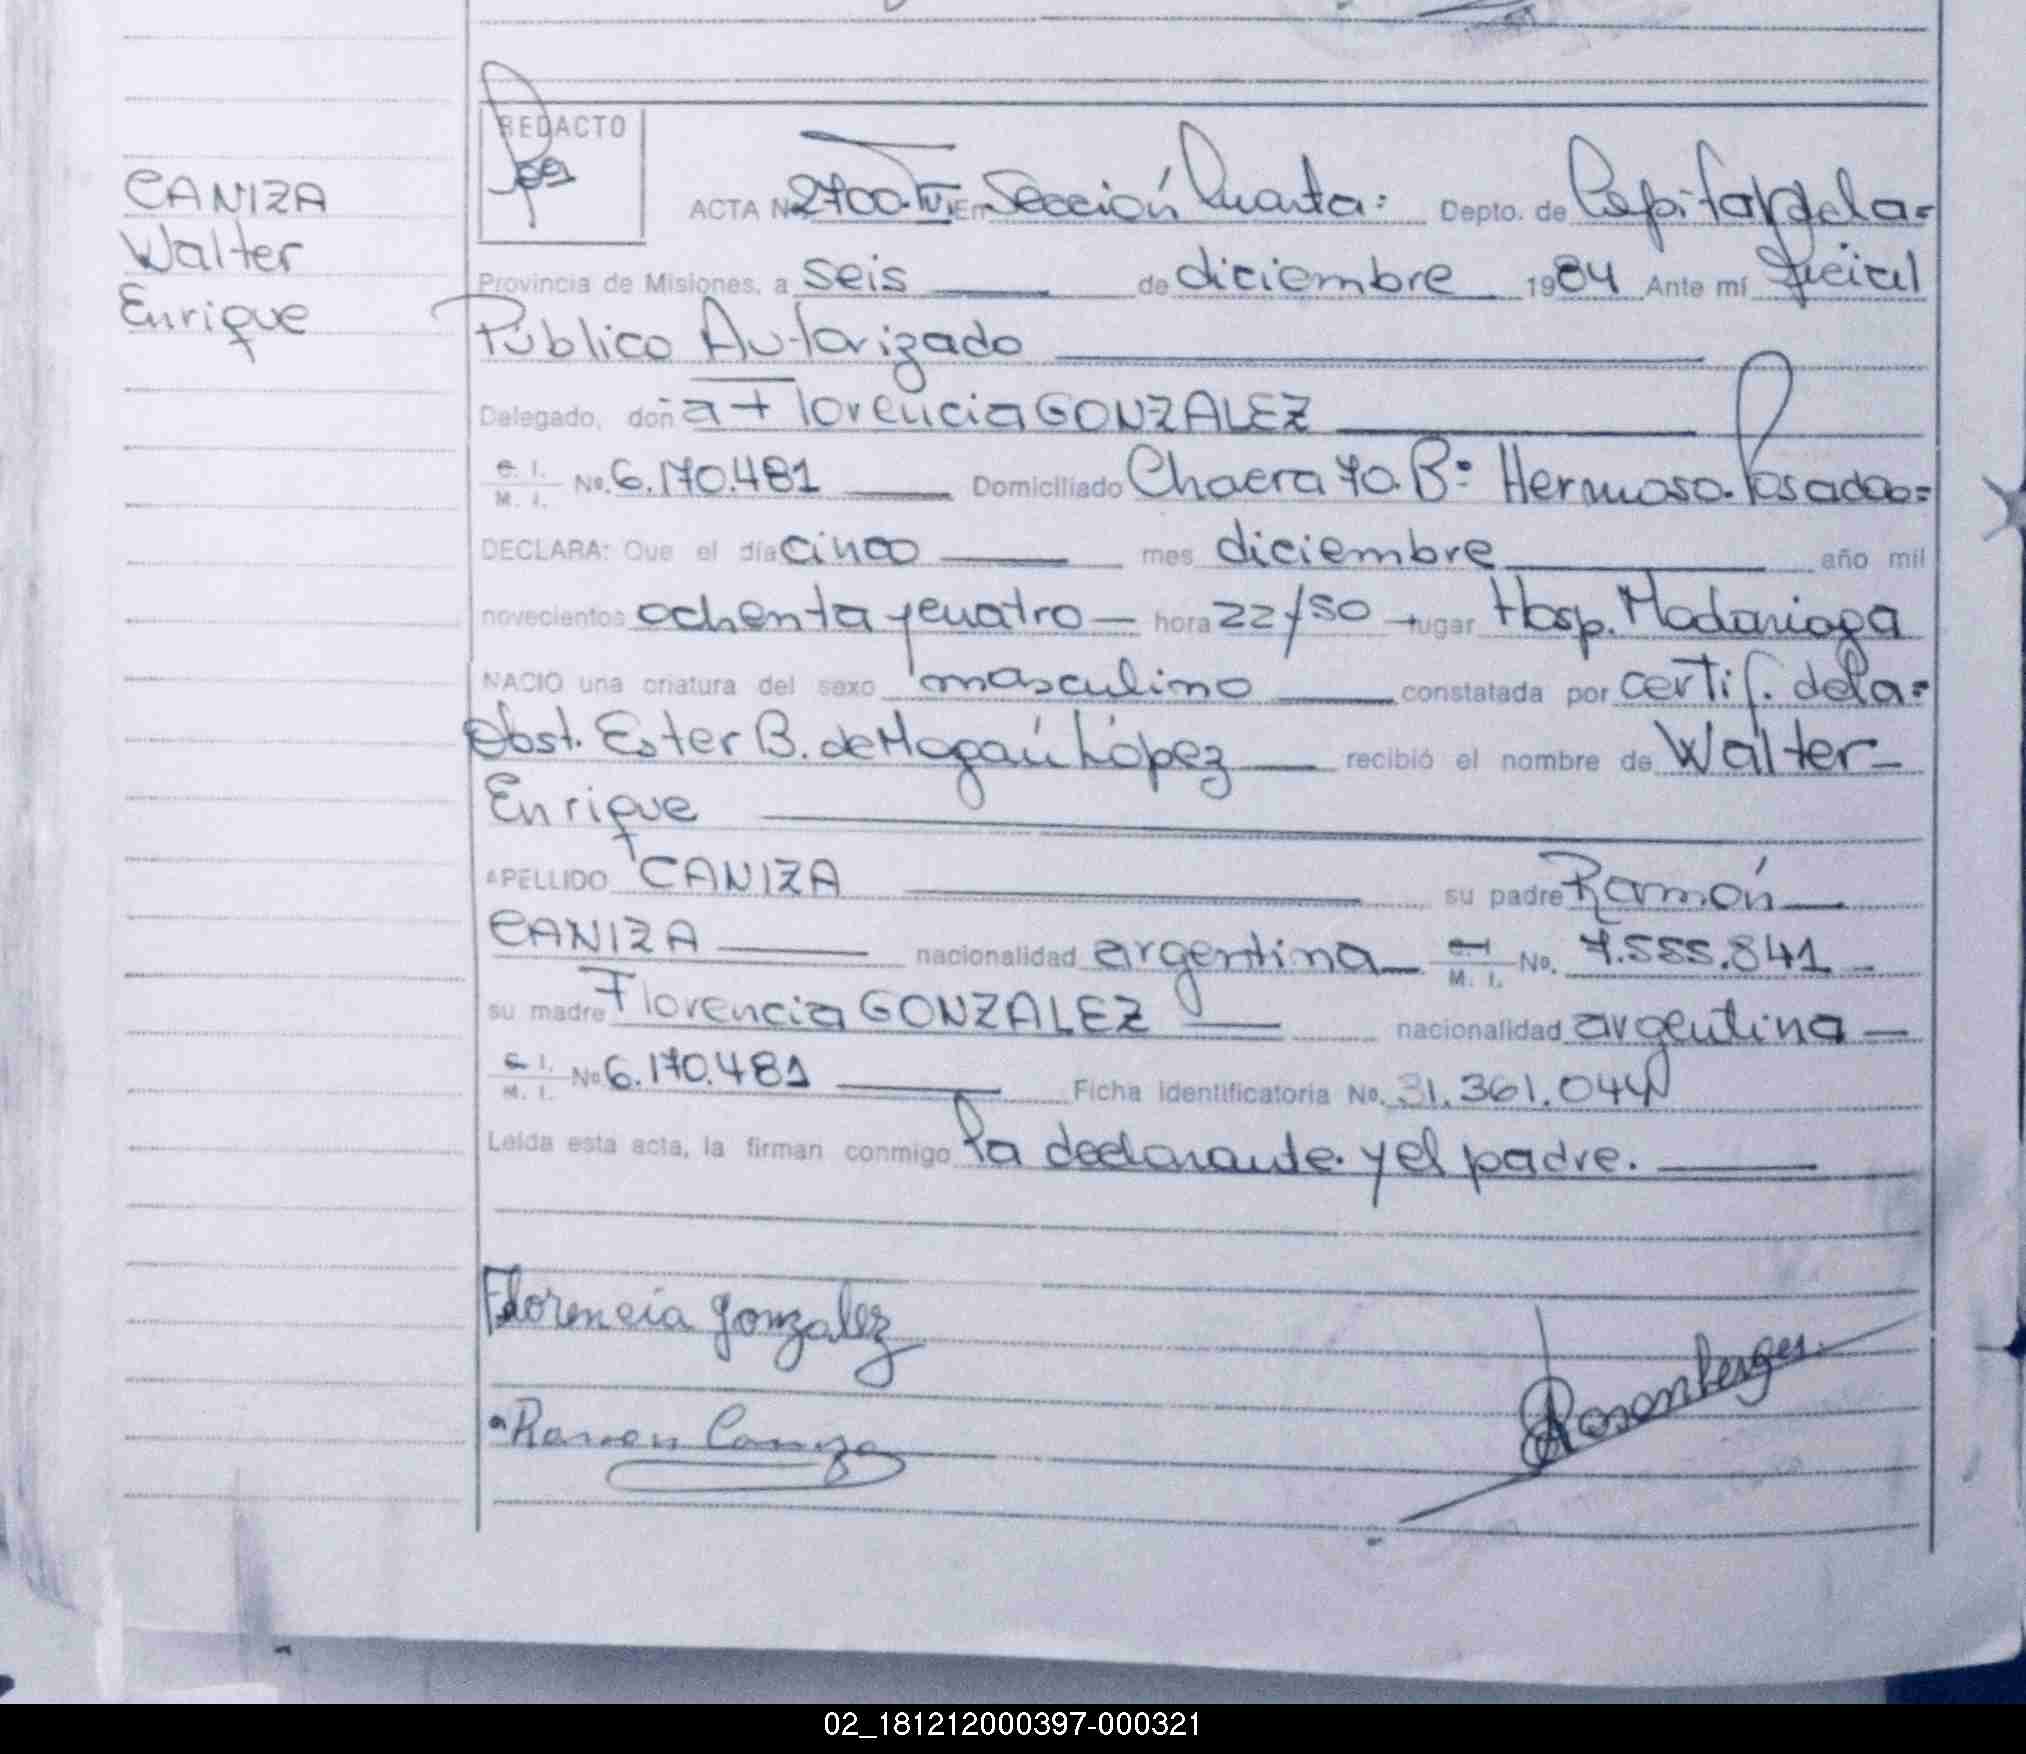 CANIZA
Walter
Enrique
REDACTO
ACTA Nº 2700. IV. En Sección Cuarta: Depto. de Capital de la=
Provincia de Misiones, a seis de diciembre 1984 Ante mí Oficial
Público Autorizado
Delegado, doña Florencia GONZALEZ
C. I. M. I. No. 6.170.481 Domiciliado Chacra 70. Bº Hermoso. Posadas=
DECLARA: Que el día cinco mes diciembre año mil
novecientos ochenta y cuatro hora 22/50 lugar Hosp. Madariaga
NACIO una criatura del sexo masculino constatada por certif. de la=
Obst. Ester B. de López recibió el nombre de Walter
Enrique
APELLIDO CANIZA su padre Ramón
CANIZA nacionalidad argentina C. I. M. I. No. 7.555.841
su madre Florencia GONZALEZ nacionalidad argentina
C. I. M. I. No. 6.170.481 Ficha identificatoria No. 31.361.044
Leída esta acta, la firman conmigo la declarante y el padre.
Florencia gonzalez
Ramon Caniza
Rosenberger
02_181212000397-000321